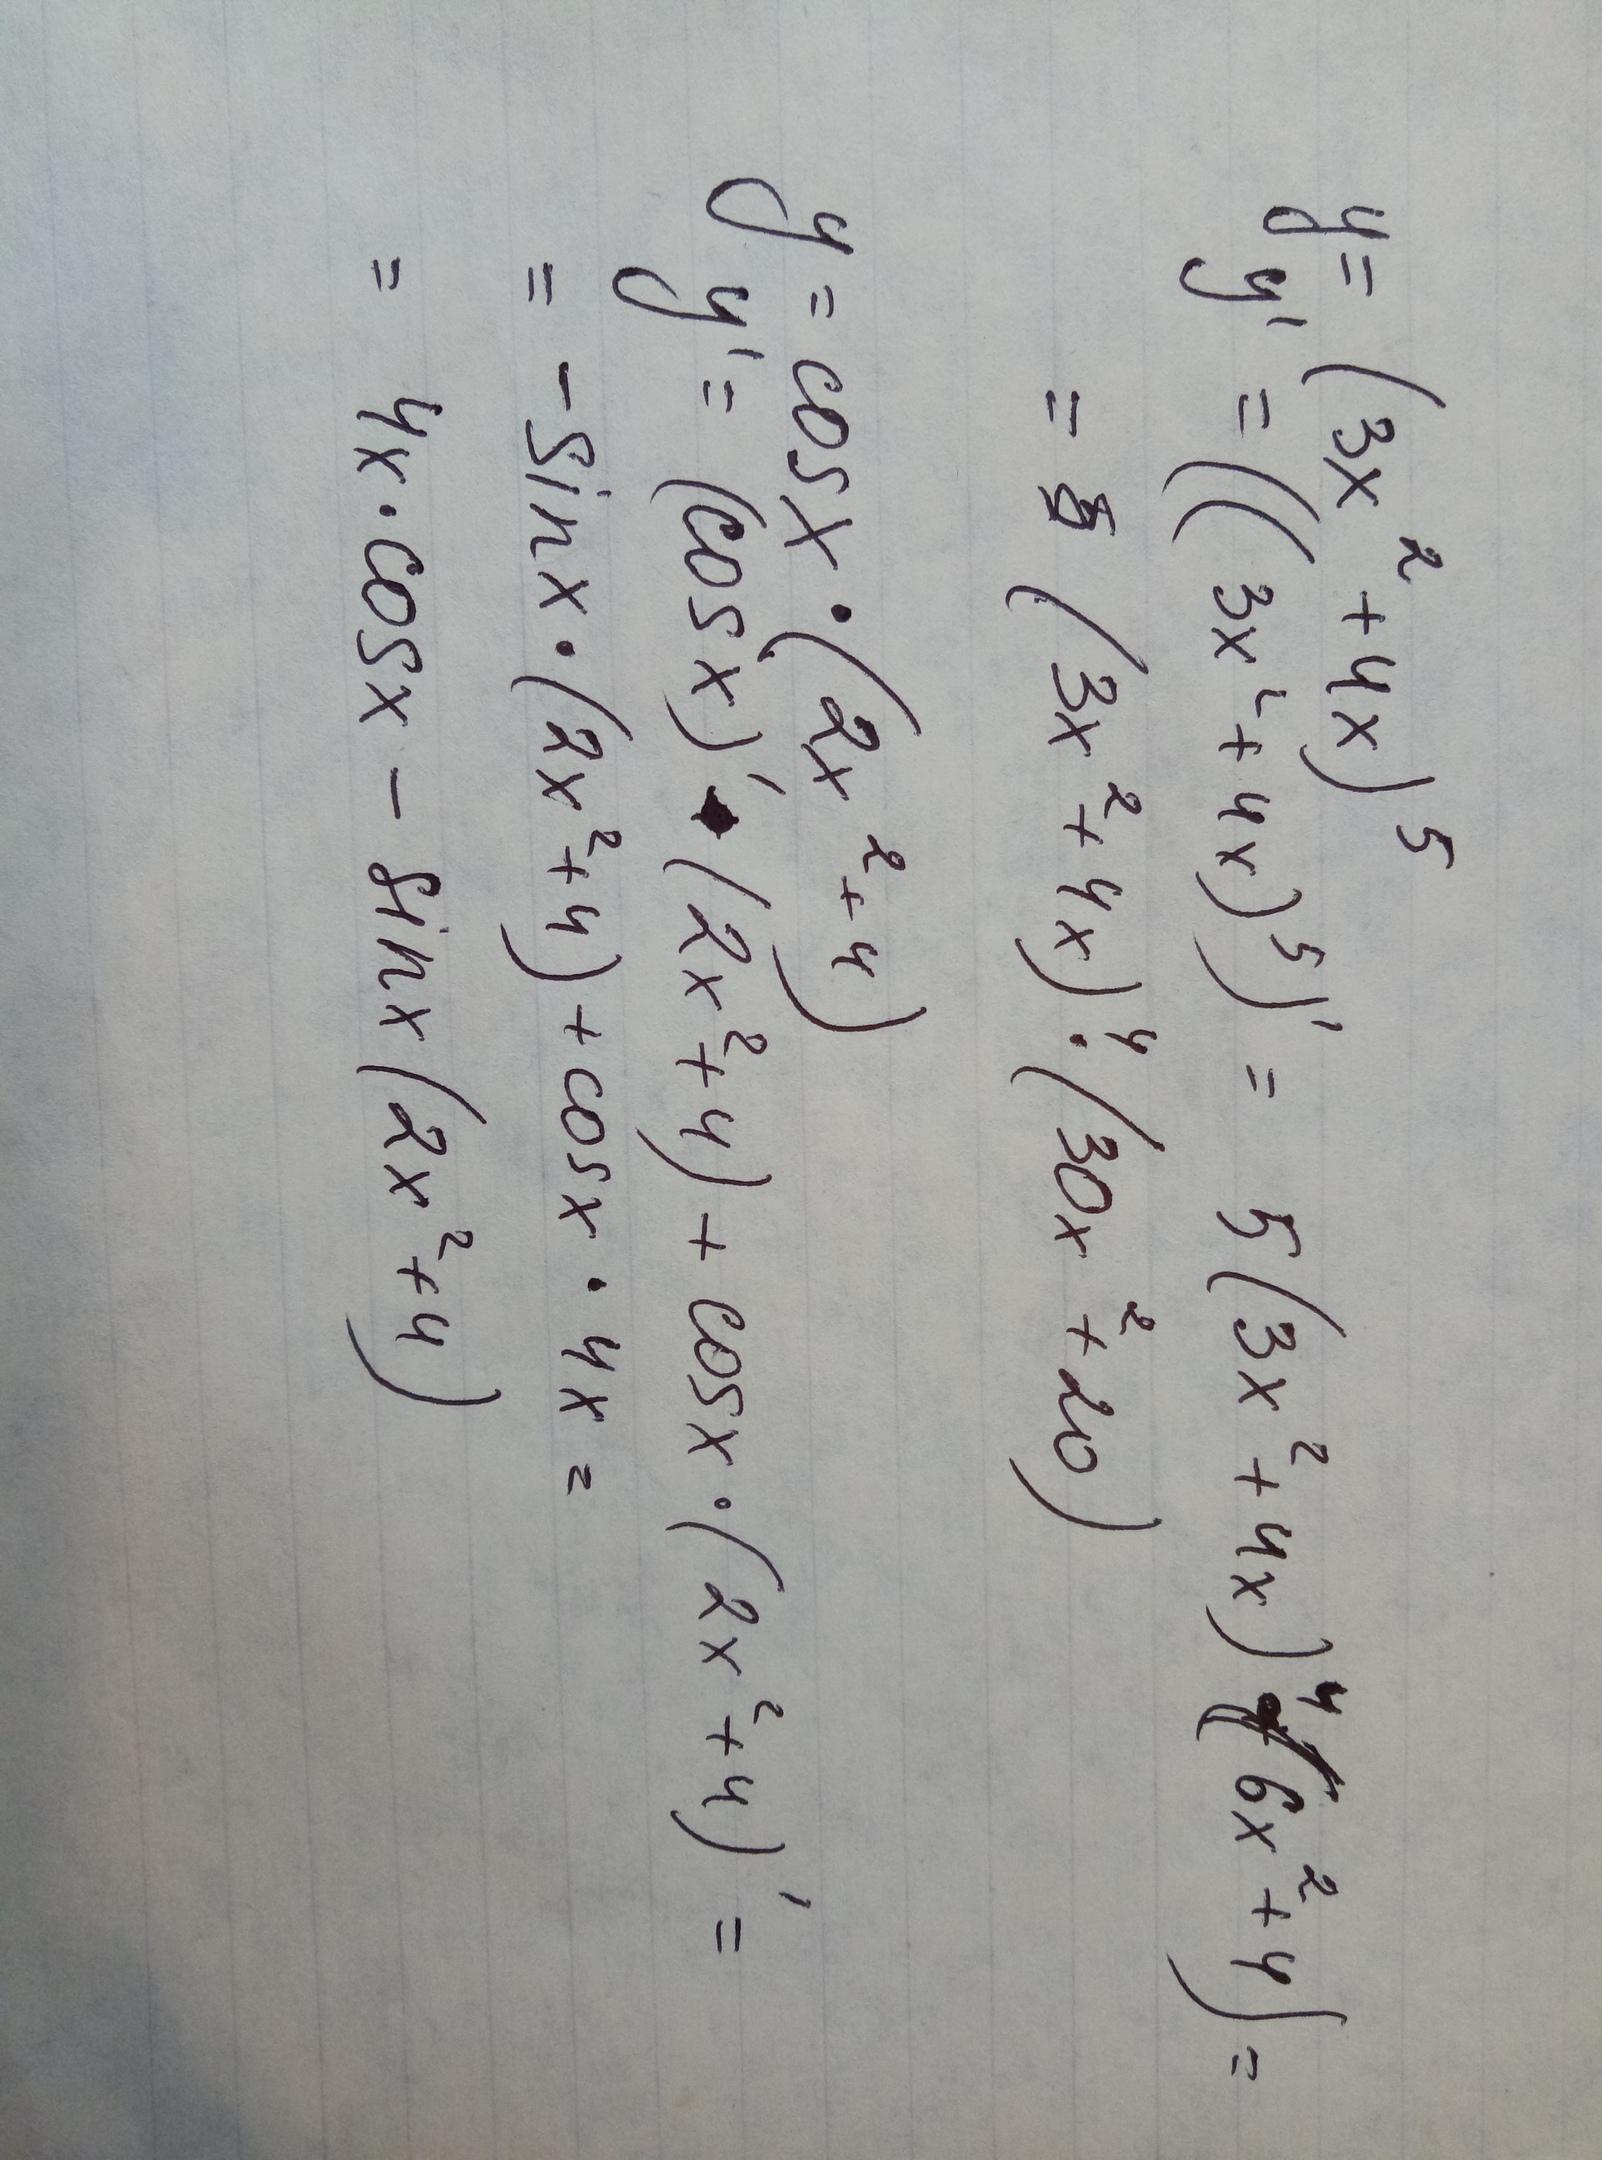 y = (3x² + 4x)⁵
y' = ((3x² + 4x)⁵)' = 5(3x² + 4x)⁴(6x² + 4) =
= (3x² + 4x)⁴ · (30x² + 20)
y = cosx · (2x² + 4)
y' = (cosx)' · (2x² + 4) + cosx · (2x² + 4)' =
= -sinx · (2x² + 4) + cosx · 4x =
= 4x · cosx - sinx (2x² + 4)